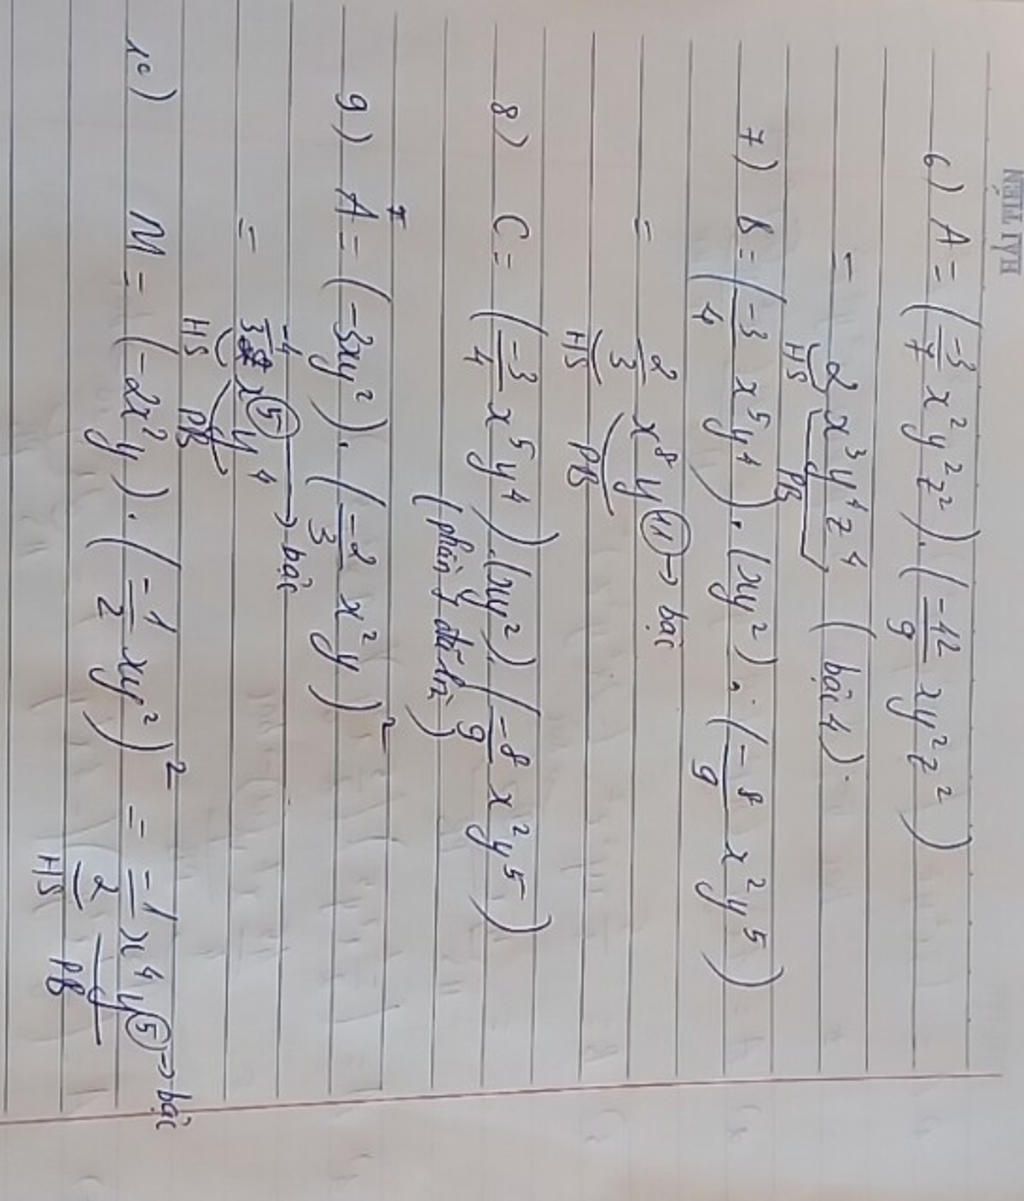 HẢI TIẾN
6) A = (-3/7 x²y²z²).(-42/9 xy²z²)
= 2x³y⁴z⁴ (bậc 4).
HS PB
7) B = (-3/4 x⁵y⁴).(xy²).(-8/9 x²y⁵)
= 2/3 x⁸y⑪ → bậc
HS PB
8) C = (-3/4 x⁵y⁴).(xy²).(-8/9 x²y⁵)
(phần y đã trừ)
9) A = (-3xy²).(-2/3 x²y)²
= -4/3 x⑤y⁴ → bậc
HS PB
10) M = (-2x²y).(-1/2 xy²)² = -1/2 x⁴y⑤ → bậc
HS PB